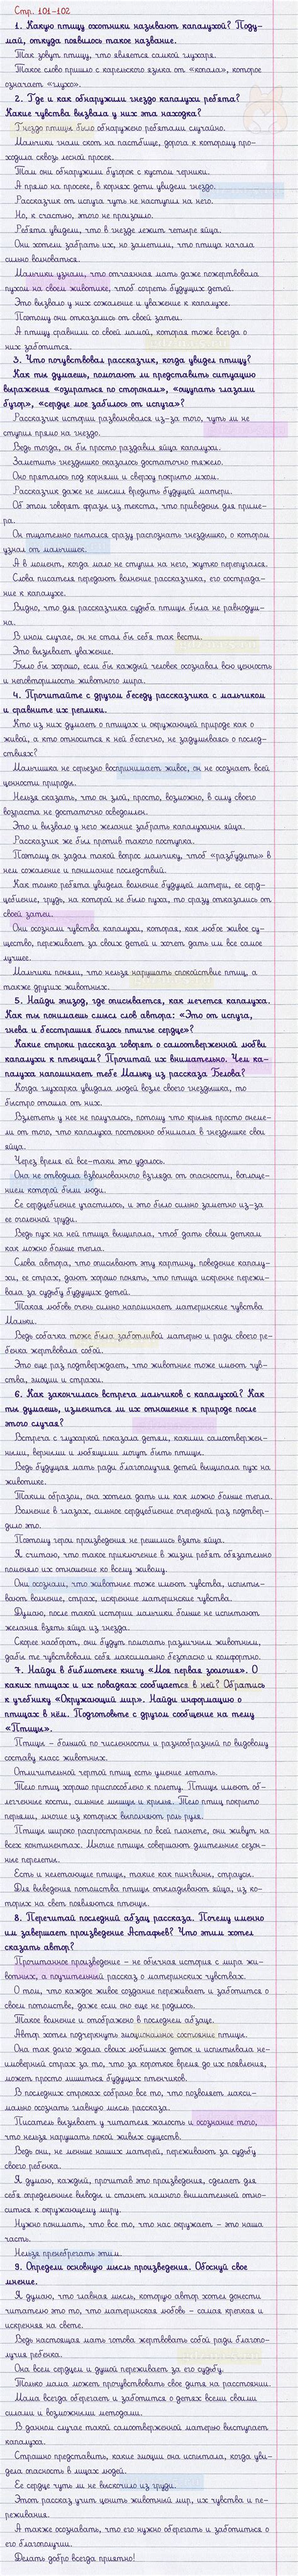 Стр. 101-102
1. Какую птицу охотники называют капалухой? Поду-
май, откуда появилось такое название.
Так зовут птицу, что является самкой глухаря.
Такое слово пришло с карельского языка от «копала», которое
означает «глухо».
2. Где и как обнаружили гнездо капалухи ребята?
Какие чувства вызвала у них эта находка?
Гнездо птицы было обнаружено ребятами случайно.
Мальчики гнали скот на пастбище, дорога к которому про-
ходила сквозь лесной просек.
Там они обнаружили бугорок с кустом черники.
А прямо на просеке, в корнях дети увидели гнездо.
Рассказчик от испуга чуть не наступил на него.
Но, к счастью, этого не произошло.
Ребята увидели, что в гнезде лежит четыре яйца.
Они хотели забрать их, но заметили, что птица начала
сильно волноваться.
Мальчики узнали, что отчаянная мать даже пожертвовала
пухом на своем животике, чтоб согреть будущих детей.
Это вызвало у них сожаление и уважение к капалухе.
Поэтому они отказались от своей затеи.
А птицу сравнили со своей мамой, которая тоже всегда о
них заботится.
3. Что почувствовал рассказчик, когда увидел птицу?
Как ты думаешь, помогают ли представить ситуацию
выражения «озираться по сторонам», «ощупать глазами
бугор», «сердце мое забилось от испуга»?
Рассказчик истории разволновался из-за того, чуть ли не
ступил прямо на гнездо.
Ведь тогда, он бы просто раздавил яйца капалухи.
Заметить гнездышко оказалось достаточно тяжело.
Оно пряталось под корнями и сверху покрыто мхом.
Рассказчик даже не мыслил вредить будущей матери.
Об этом говорят фразы из текста, что приведены для приме-
ра.
Он тщательно пытался сразу распознать гнездышко, о котором
узнал от мальчишек.
А в момент, когда мало не ступил на него, жутко перепугался.
Слова писателя передают волнение рассказчика, его сострада-
ние к капалухе.
Видно, что для рассказчика судьба птицы была не равнодуш-
на.
В ином случае, он не стал бы себя так вести.
Это вызывает уважение.
Было бы хорошо, если бы каждый человек осознавал всю ценность
и неповторимость животного мира.
4. Прочитайте с другом беседу рассказчика с мальчиком
и сравните их реплики.
Кто из них думает о птицах и окружающей природе как о
живой, а кто относится к ней беспечно, не задумываясь о послед-
ствиях?
Мальчишка не серьезно воспринимает живое, он не осознает всей
ценности природы.
Нельзя сказать, что он злой, просто, возможно, в силу своего
возраста не достаточно осведомлен.
Это и вызвало у него желание забрать капалухины яйца.
Рассказчик же был против такого поступка.
Поэтому он задал такой вопрос мальчику, чтоб «разбудить» в
нем сожаление и понимание последствий.
Как только ребята увидели волнение будущей матери, ее серд-
цебиение, грудь, на которой не было пуха, то сразу отказались от
своей затеи.
Они осознали чувства капалухи, которая, как любое живое су-
щество, переживает за своих детей и хочет дать им все самое
лучшее.
Мальчики поняли, что нельзя нарушать спокойствие птиц, а
также других животных.
5. Найди эпизод, где описывается, как мечется капалуха.
Как ты понимаешь смысл слов автора: «Это от испуга,
гнева и бесстрашия билось птичье сердце»?
Какие строки рассказа говорят о самоотверженной любви
капалухи к птенцам? Прочитай их внимательно. Чем ка-
палуха напоминает тебе Мальку из рассказа Белова?
Когда глухарка увидала людей возле своего гнездышка, то
быстро отошла от них.
Взлететь у нее не получалось, потому что крылья просто онеме-
ли от того, что капалуха постоянно обнимала в гнездышке свои
яйца.
Через время ей все-таки это удалось.
Она не отводила взволнованного взгляда от опасности, воплоще-
нием которой были люди.
Ее сердцебиение участилось, и это было сильно заметно из-за
ее оголенной груди.
Ведь пух на ней птица выщипала, чтоб дать своим деткам
как можно больше тепла.
Слова автора, что описывают эту картину, поведение капалу-
хи, ее страх, дают хорошо понять, что птица искренне пережи-
вала за судьбу будущих детей.
Такая любовь очень сильно напоминает материнские чувства
Мальки.
Ведь собачка тоже была заботливой матерью и ради своего ре-
бенка жертвовала собой.
Это еще раз подтверждает, что животные тоже имеют чув-
ства, эмоции и страхи.
6. Как закончилась встреча мальчиков с капалухой? Как
ты думаешь, изменится ли их отношение к природе после
этого случая?
Встреча с глухаркой показала детям, какими самоотвержен-
ными, верными и любящими могут быть птицы.
Ведь будущая мать ради благополучия детей выщипала пух на
животике.
Таким образом, она хотела дать им как можно больше тепла.
Волнение в глазах, сильное сердцебиение очередной раз подтвер-
дило это.
Поэтому герои произведения не решились взять яйца.
Я считаю, что такое приключение в жизни ребят обязательно
поменяло их отношение ко всему живому.
Они осознали, что животные тоже имеют чувства, испыты-
вают волнение, страх, искренние материнские чувства.
Думаю, после такой истории мальчики больше не испытают
желания взять яйца из гнезда.
Скорее наоборот, они будут помогать различным животным,
дабы те чувствовали себя максимально безопасно и комфортно.
7. Найди в библиотеке книгу «Моя первая зоология». О
каких птицах и их повадках сообщается в ней? Обратись
к учебнику «Окружающий мир». Найди информацию о
птицах в нём. Подготовьте с другом сообщение на тему
«Птицы».
Птицы – большой по численности и разнообразный по видовому
составу класс животных.
Отличительной чертой птиц есть умение летать.
Тело птиц хорошо приспособлено к полету. Птицы имеют об-
легченные кости, сильные мышцы и крылья. Тело птиц покрыто
перьями, многие из которых выполняют роль руля.
Птицы широко распространены по всей планете, они живут на
всех континентах. Многие птицы совершают длительные сезон-
ные перелеты.
Есть и нелетающие птицы, такие как пингвины, страусы.
Для выведения потомства птицы откладывают яйца, из ко-
торых на свет появляются птенцы.
8. Перечитай последний абзац рассказа. Почему именно
им завершает произведение Астафьев? Что этим хотел
сказать автор?
Прочитанное произведение – не обычная история с мира жи-
вотных, а поучительный рассказ о материнских чувствах.
О том, что каждое живое создание переживает и заботится о
своем потомстве, даже если оно еще не родилось.
Такое волнение и отображено в последнем абзаце.
Автор хотел подчеркнуть эмоциональное состояние птицы.
Она так долго ждала своих любимых деток и испытывала не-
имоверный страх за то, что за короткое время до их появления,
может просто лишиться будущих птенчиков.
В последних строках собрано все то, что позволяет макси-
мально осознать главную мысль рассказа.
Писатель вызывает у читателя жалость и осознание того,
что нельзя нарушать покой живых существ.
Ведь они, не меньше наших матерей, переживают за судьбу
своего ребенка.
Я думаю, каждый, прочитав это произведения, сделает для
себя определенные выводы и станет намного внимательней отно-
ситься к окружающему миру.
Нужно понимать, что все то, что нас окружает – это наша
часть.
Нельзя пренебрегать этим.
9. Определи основную мысль произведения. Обоснуй свое
мнение.
Я думаю, что главная мысль, которую автор хотел донести
читателю это то, что материнская любовь – самая крепкая и
искренняя на свете.
Ведь настоящая мать готова жертвовать собой ради благопо-
лучия ребенка.
Она всем сердцем и душой переживает за его судьбу.
Только мама может прочувствовать свое дитя на расстоянии.
Мама всегда оберегает и заботится о детях всеми своими
силами и возможными методами.
В данном случае такой самоотверженной матерью выступает
капалуха.
Страшно представить, какие эмоции она испытала, когда уви-
дела опасность в лицах людей.
Ее сердце чуть ли не выскочило из груди.
Этот рассказ учит ценить животный мир, их чувства и пе-
реживания.
А также осознавать, что его нужно оберегать и заботиться о
его благополучии.
Делать добро всегда приятно!